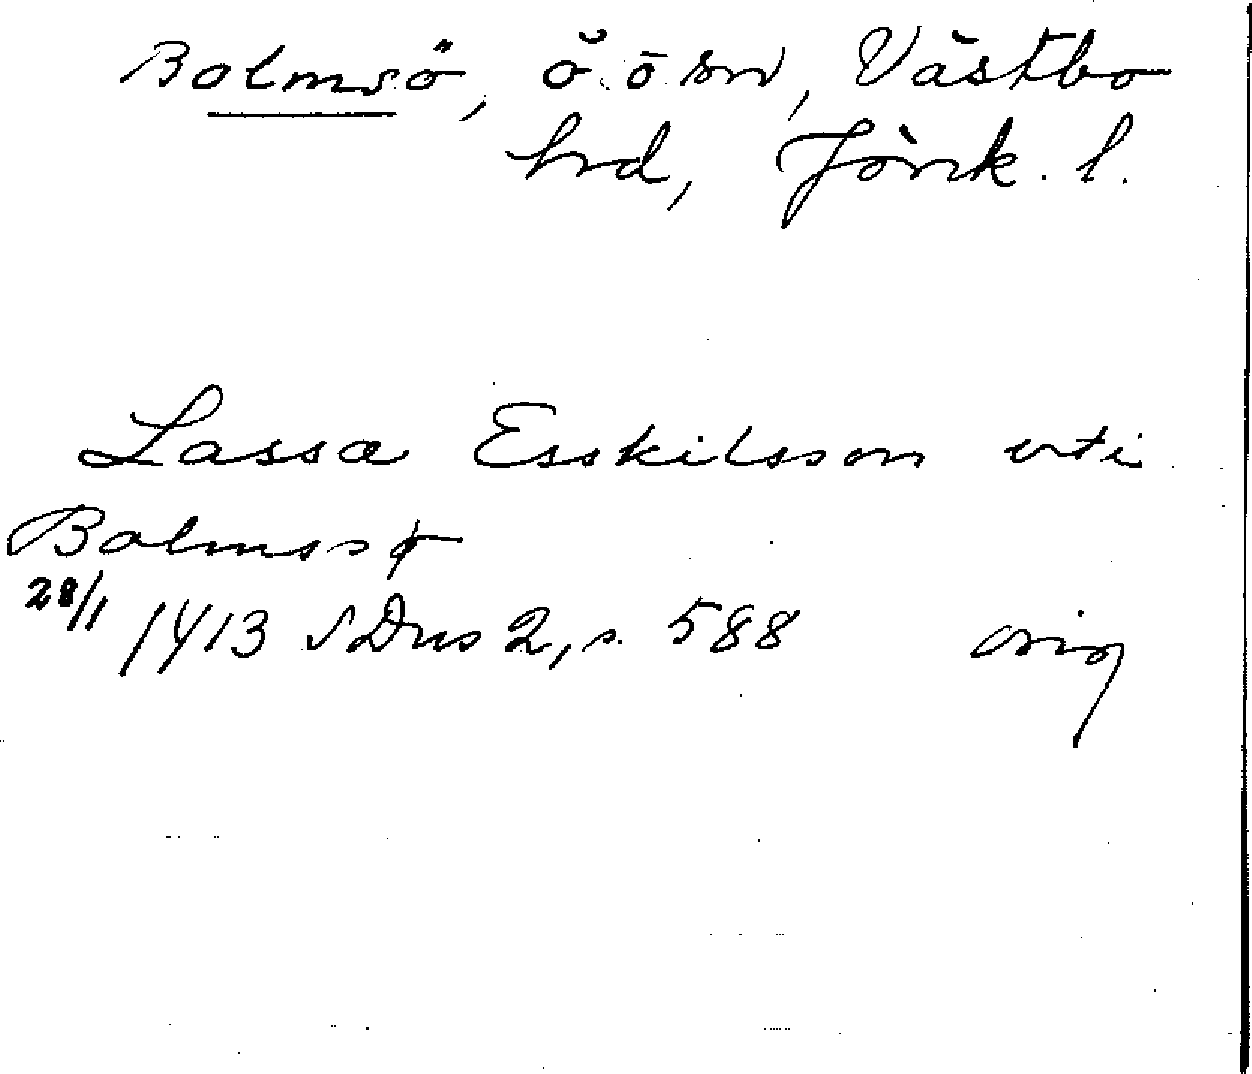 Bolmsö, ö. o sn, Västbo
hrd, Jönk. l.
Lassa Esskilsson vti
Bolmssø
28/1 1413 SDns 2, s. 588 orig